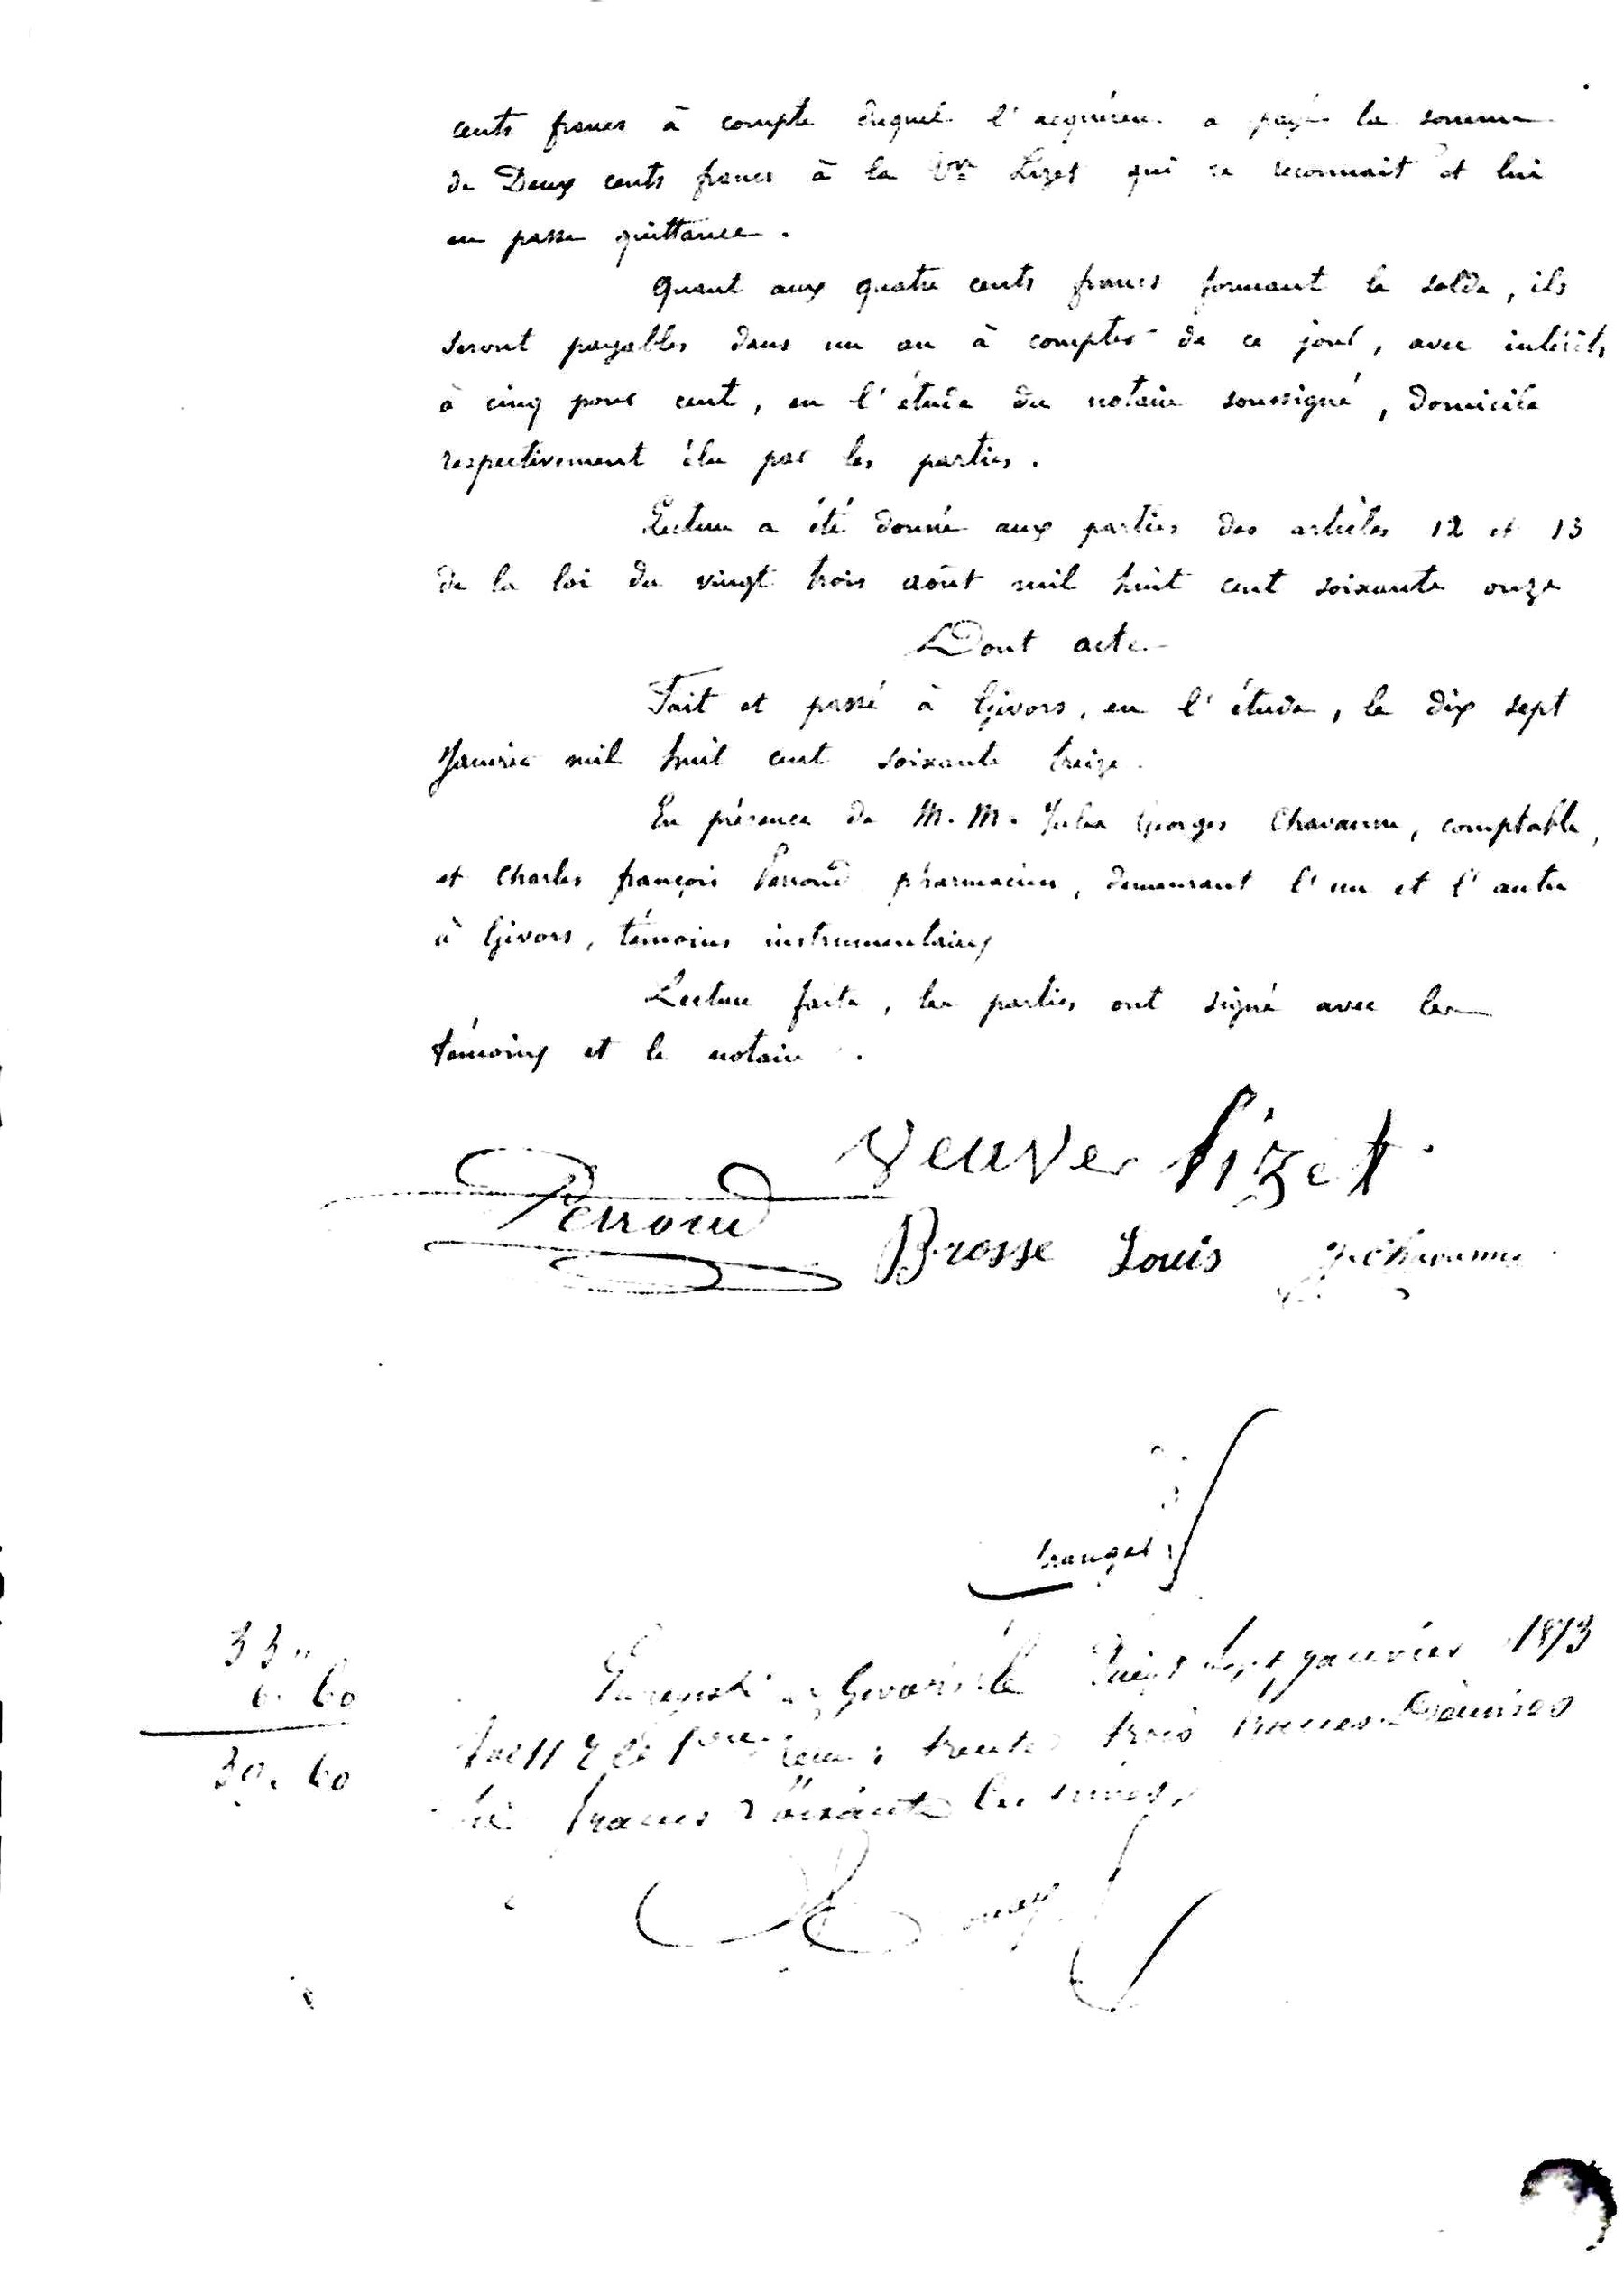 cents francs à compte duquel l'acquéreur a payé la somme
de Deux cents francs à la Vve Lizet qui le reconnait et lui
en passe quittance.
Quant aux quatre cents francs formant le solde, ils
seront payables dans un an à compter de ce jour, avec intérêts
à cinq pour cent, en l'étude du notaire soussigné, domicile
respectivement élu par les parties.
Lecture a été donné aux parties des articles 12 et 13
de la loi du vingt trois août mil huit cent soixante onze
Dont acte
Fait et passé à Givors, en l'étude, le dix sept
Janvier mil huit cent soixante treize.
En présence de M.M. Jules Georges Chavanne, comptable,
et Charles françois Perroud pharmacien, demeurant l'un et l'autre
à Givors, témoins instrumentaires
Lecture faite, les parties ont signé avec les
témoins et le notaire.
veuve Lizet
Perroud
Brosse Louis
Chavanne
33 "
6. 60
39. 60
Enregistré à Givors le vingt sept janvier 1873
trente trois francs Décimes
six francs soixante centimes